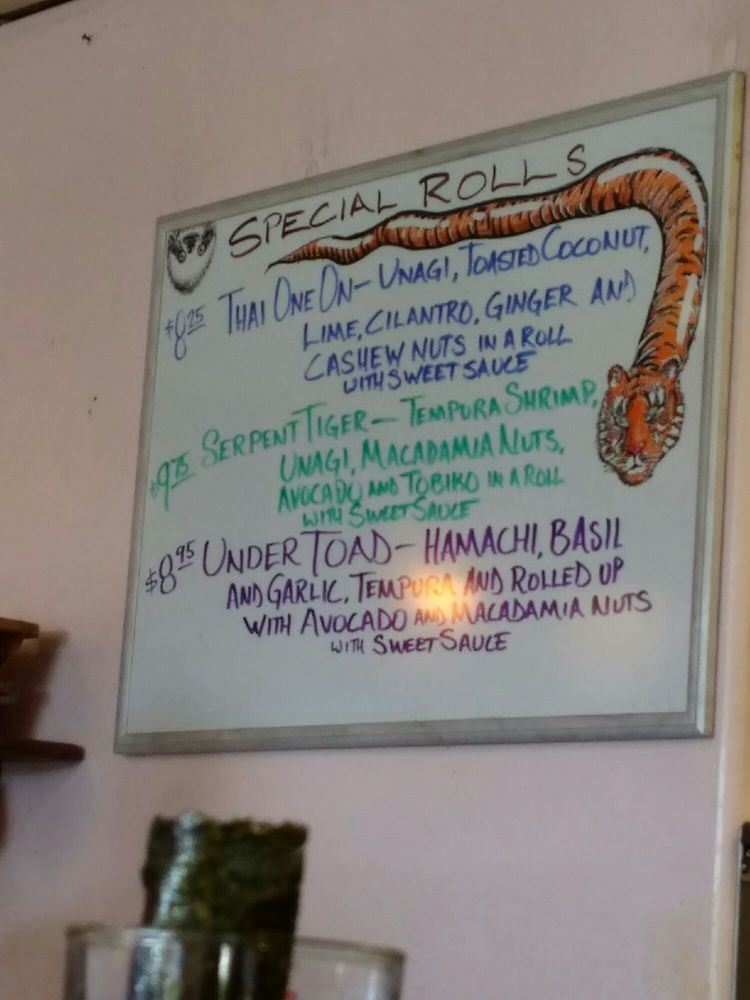 SPECIAL ROLLS
$8.25 THAI ONE ON - UNAGI, TOASTED COCONUT,
LIME, CILANTRO, GINGER AND
CASHEW NUTS IN A ROLL
WITH SWEET SAUCE
$9.75 SERPENT TIGER - TEMPURA SHRIMP,
UNAGI, MACADAMIA NUTS,
AVOCADO AND TOBIKO IN A ROLL
WITH SWEET SAUCE
$8.95 UNDER TOAD - HAMACHI, BASIL
AND GARLIC, TEMPURA AND ROLLED UP
WITH AVOCADO AND MACADAMIA NUTS
WITH SWEET SAUCE